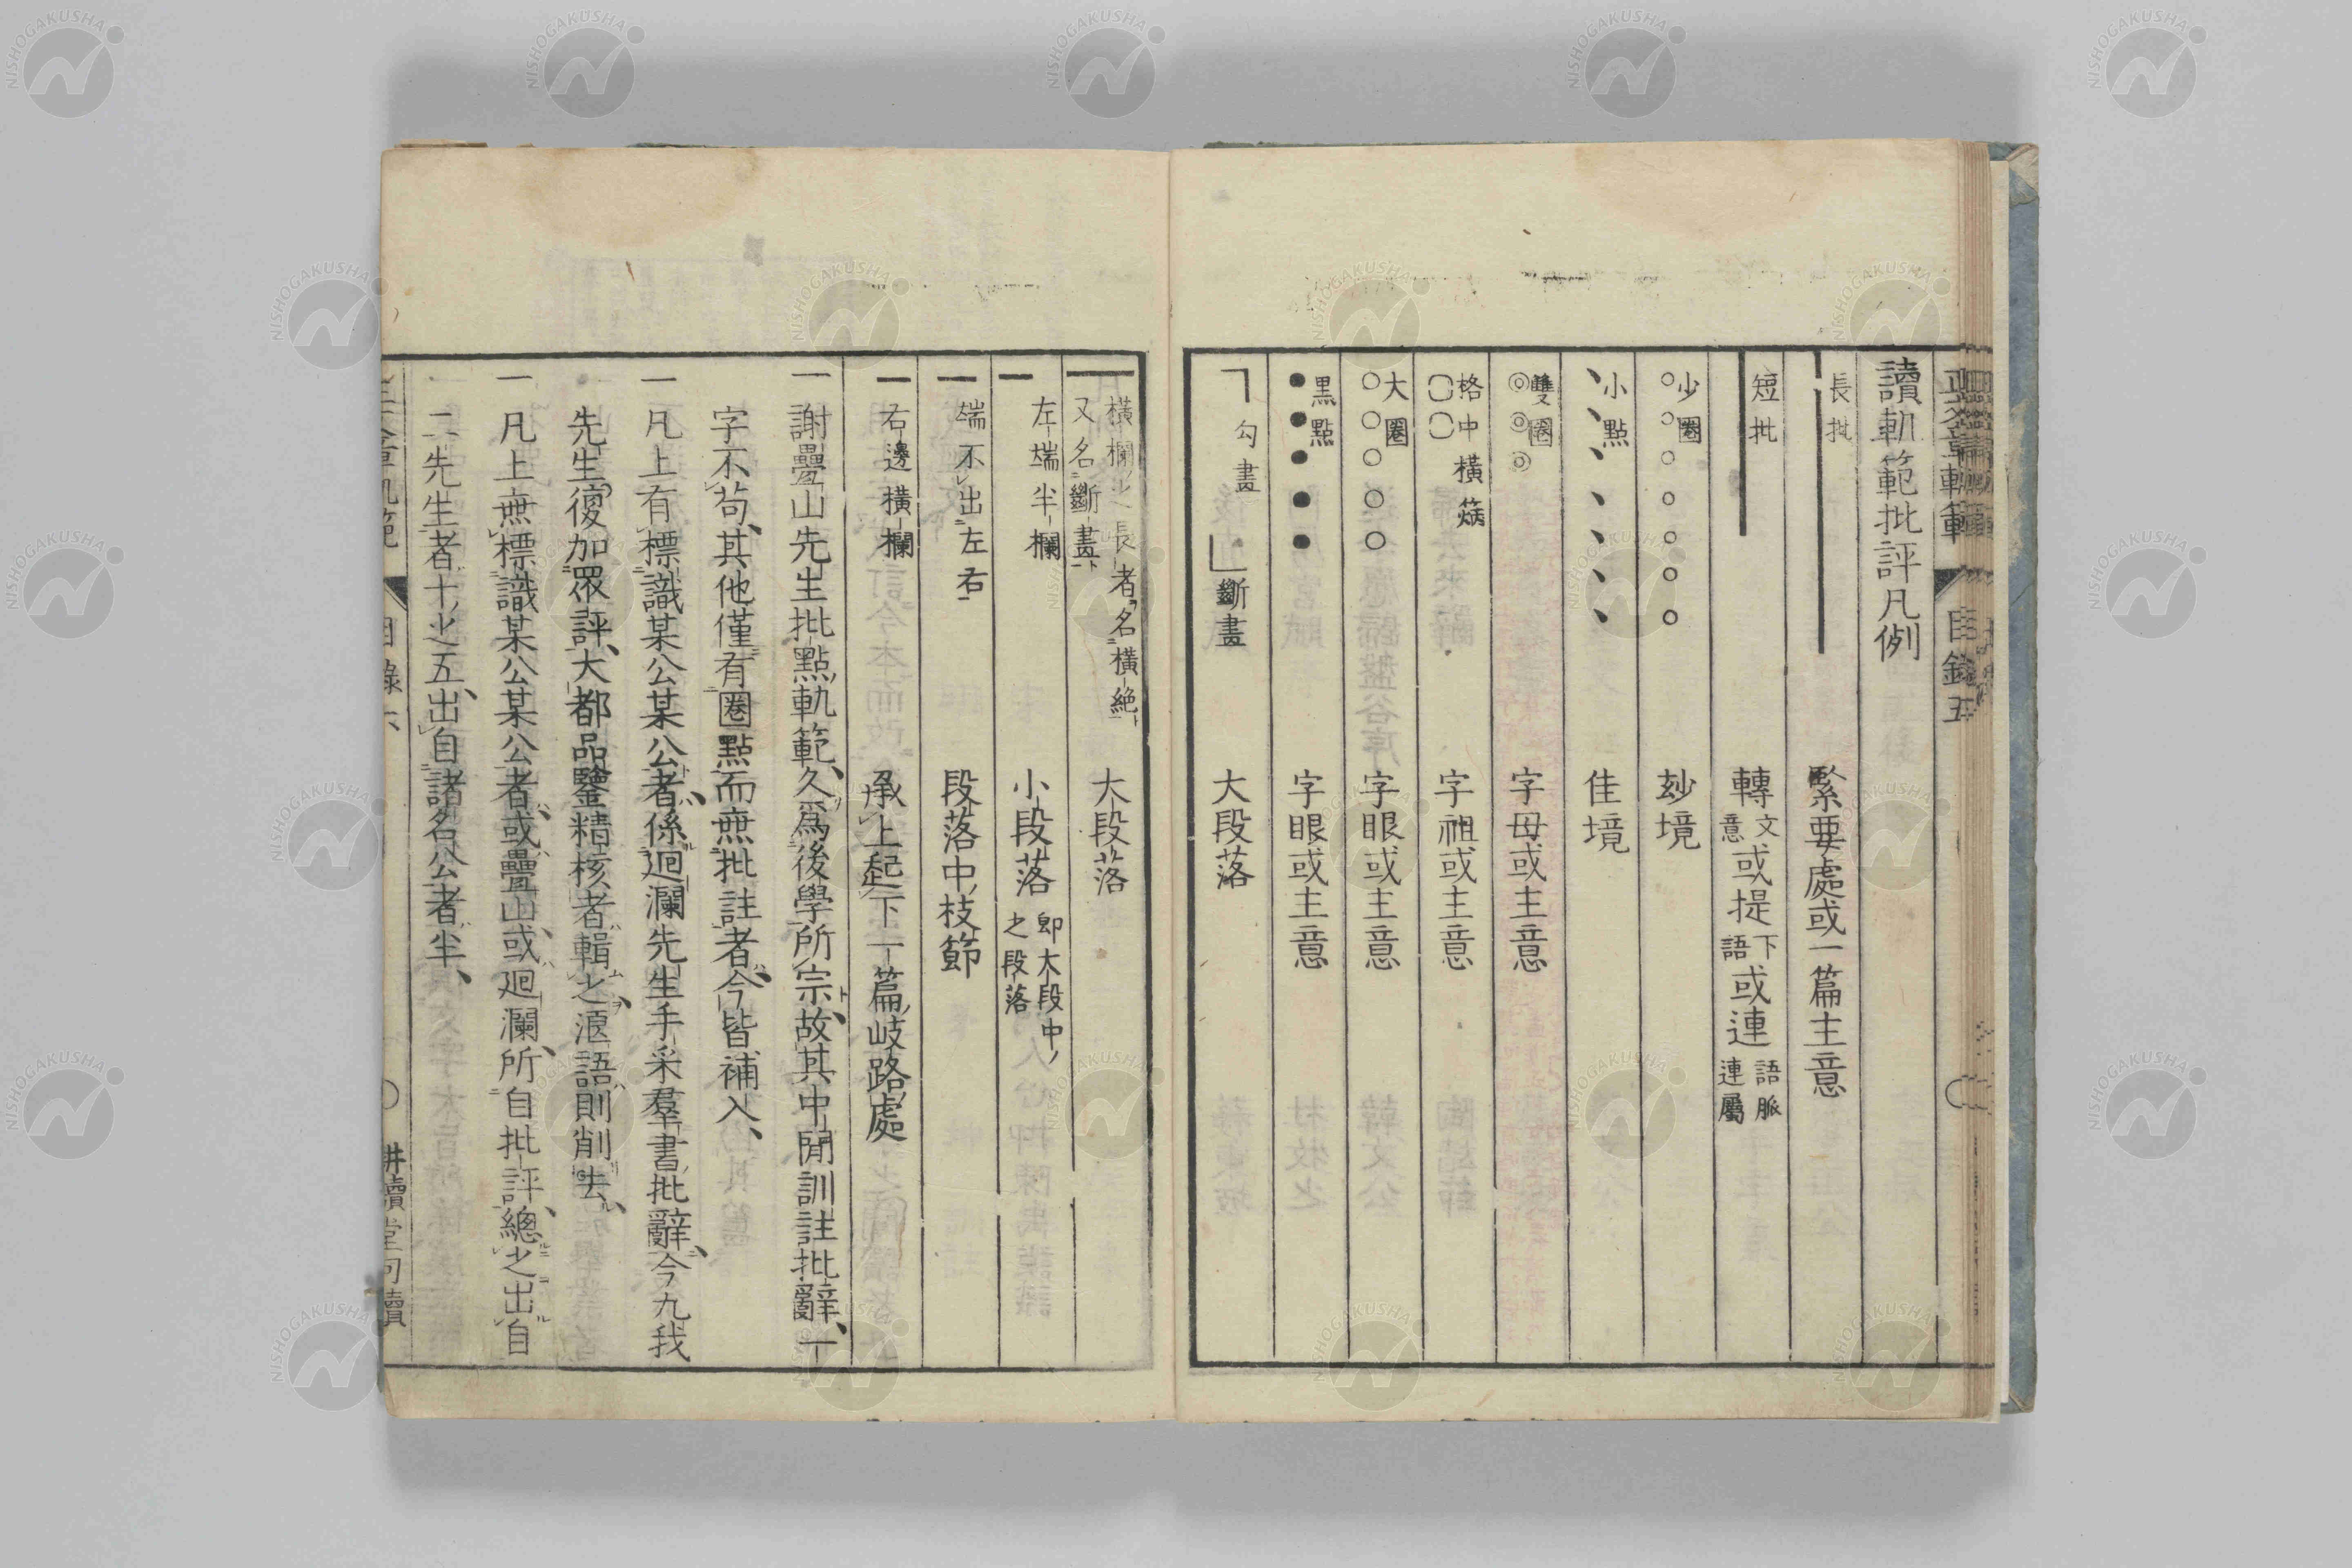 讀軌範批評凡例
長批 緊要處或一篇主意
短批 轉文意或提下語或連語脈連屬
少圈 玅境
小點 佳境
雙圈 字母或主意
格中橫𤨏 字祖或主意
大圈 字眼或主意
黑點 字眼或主意
勾畫 斷畫 大段落
橫欄之長者名橫絶又名斷畫 大段落
左端半欄 小段落即大段中之段落
端不出左右 段落中枝節
右邊橫欄 承上起下一篇岐路處
一謝疊山先生批點軌範久爲後學所宗故其中間訓註批辭一
字不苟其他僅有圈點而無批註者今皆補入
一凡上有標識某公某公者係迴瀾先生手采羣書批辭今九我
先生復加眾評大都品鑒精核者輯之漫語則削去
一凡上無標識某公某公者或疊山或迴瀾所自批評總之出自
二先生者十之五出自諸名公者半
目錄五
耕讀堂句讀
NISHOGAKUSHA